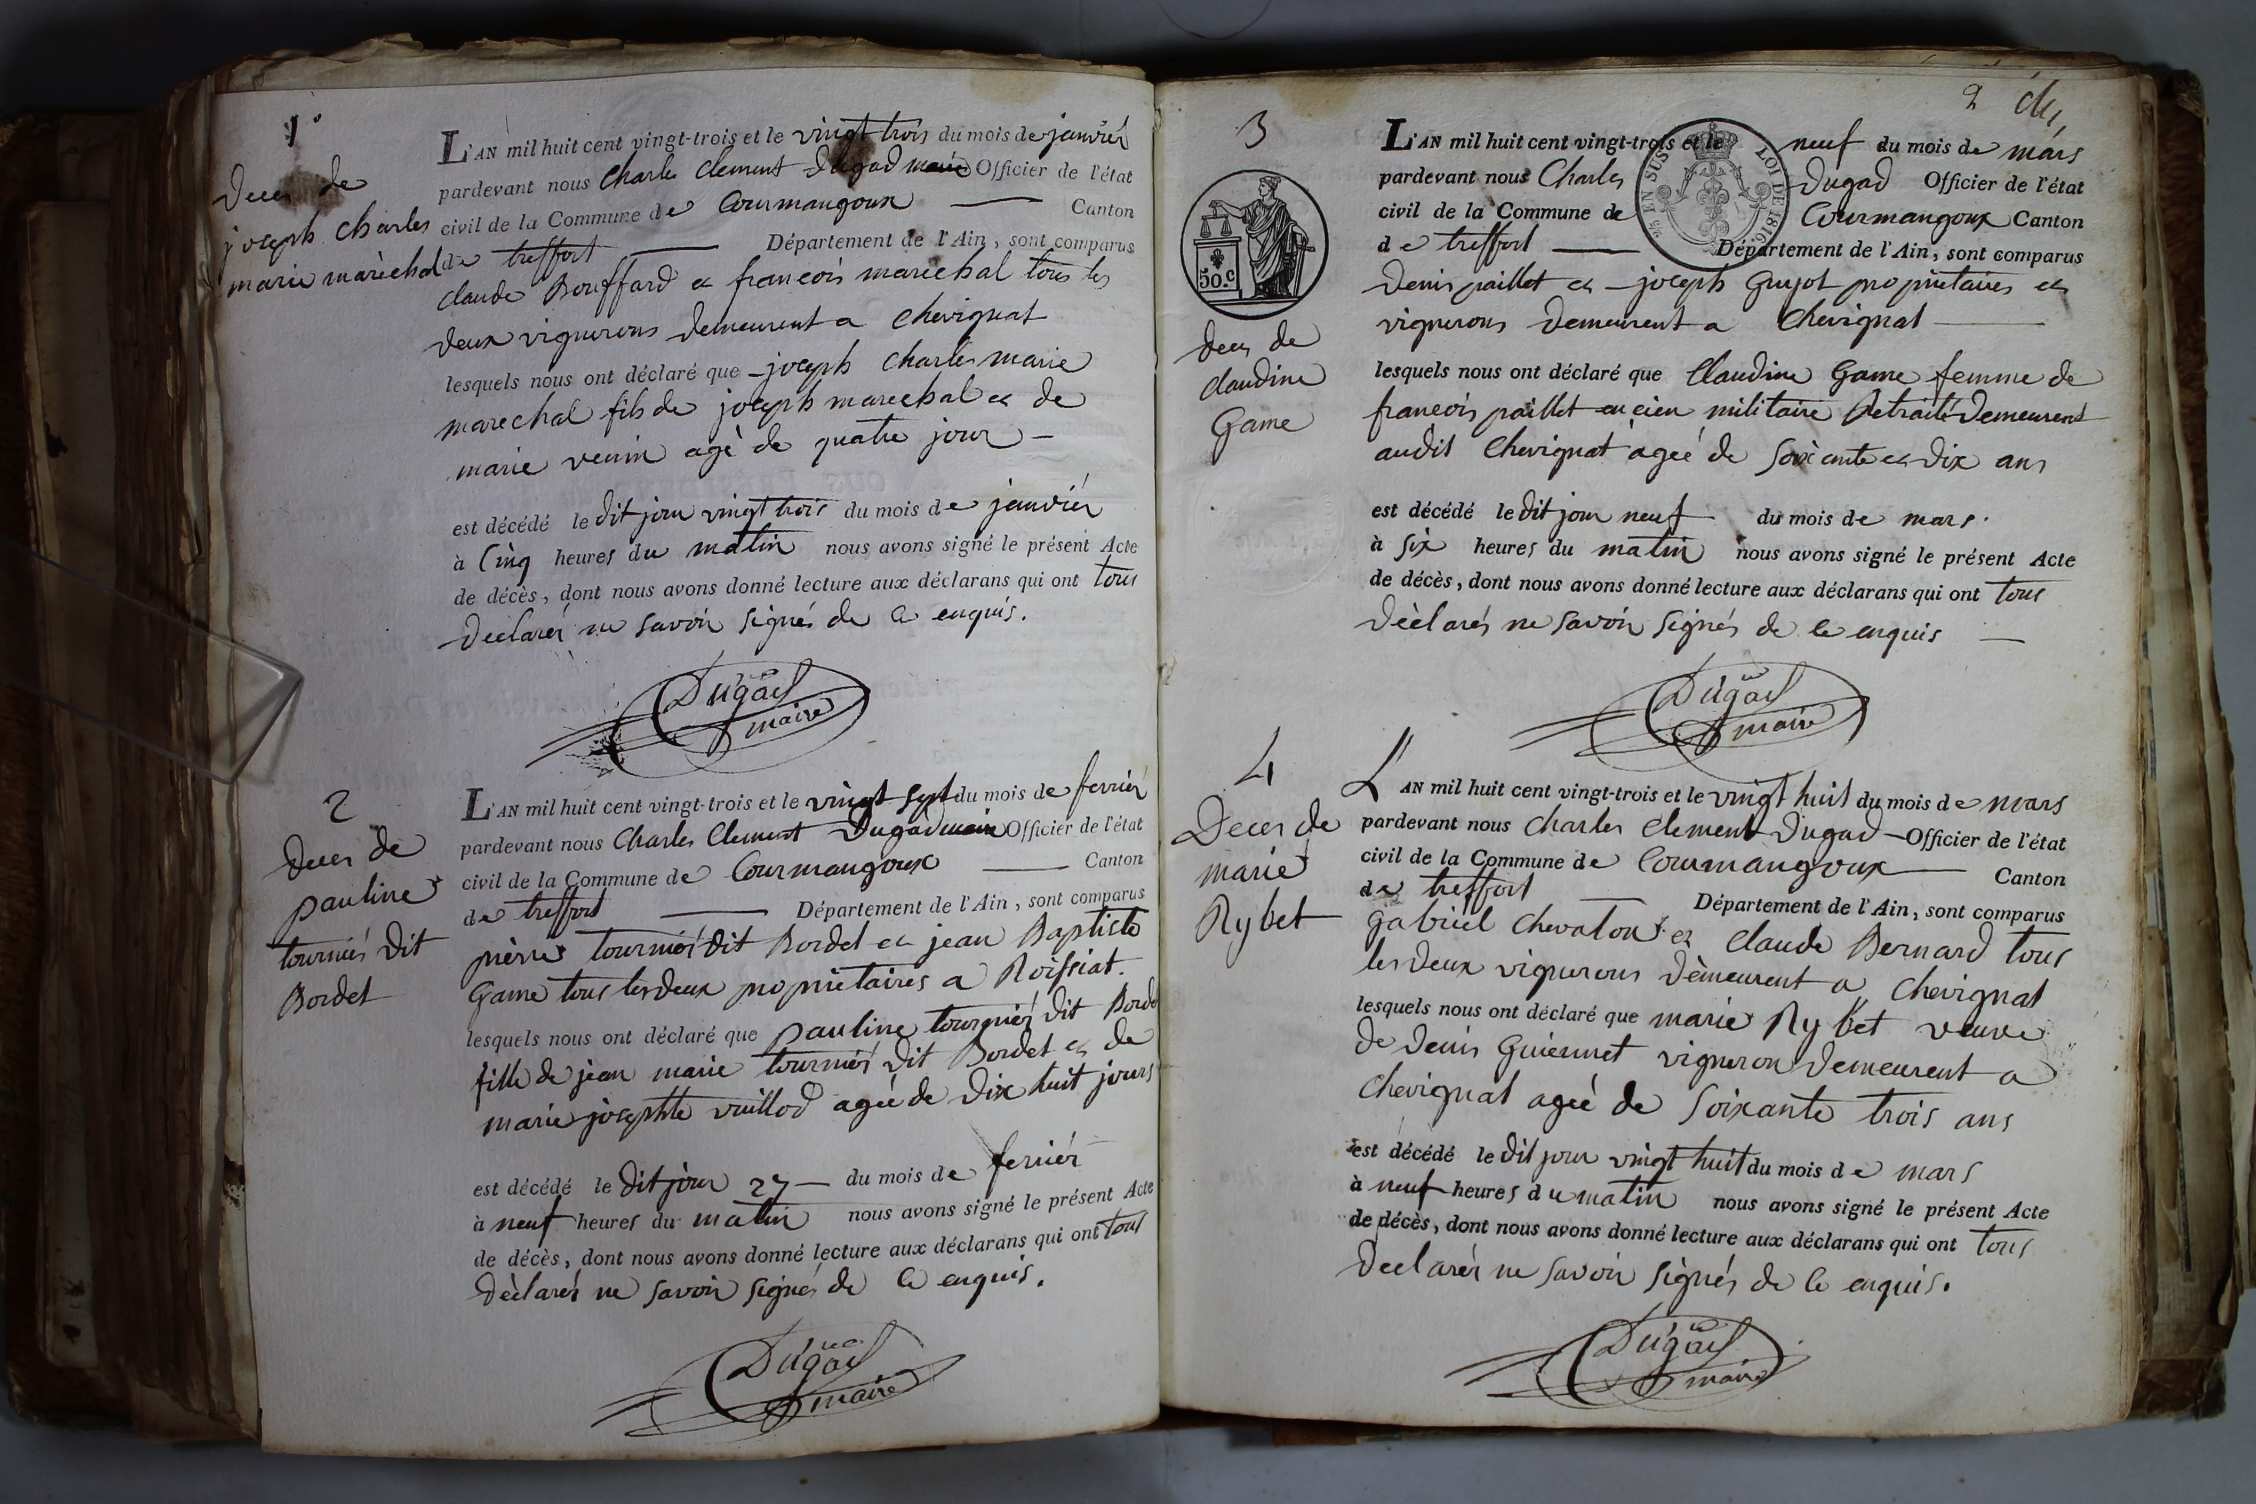 1°
Deces de
joseph Charles
marie maréchal
L'AN mil huit cent vingt-trois et le vingt trois du mois de janviér
pardevant nous Charles Clement Dugad maire Officier de l'état
civil de la Commune de Courmangoux Canton
de treffort Département de l'Ain, sont comparus
claude Bouffard et francois marechal tous les
deux vignerons demeurent a chevignat
lesquels nous ont déclaré que joseph charles marie
marechal fils de joseph marechal et de
marie venin agè de quatre jour
est décédé le dit jour vingt trois du mois de janviér
à Cinq heures du matin nous avons signé le présent Acte
de décès, dont nous avons donné lecture aux déclarans qui ont tous
declarér ne savoir signés de ce enquis.
Dugad
maire
2
deces de
pauline
tourniér dit
Bordet
L'AN mil huit cent vingt-trois et le vingt sept du mois de ferriér
pardevant nous Charles Clement Dugad maire Officier de l'état
civil de la Commune de Courmangoux Canton
de treffort Département de l'Ain, sont comparus
pierre tourniér dit Bordet et jean Baptiste
Game tous les deux propriétaires a Roissiat.
lesquels nous ont déclaré que pauline tourniér dit Borde
fille de jean marie tourniér dit Bordet et de
marie josephte vuillod agée de dix huit jours
est décédé le dit jour 27 du mois de ferriér
à neuf heures du matin nous avons signé le présent Acte
de décès, dont nous avons donné lecture aux déclarans qui ont tous
dèclarér ne savoir signés de ce enquis.
Dugad
maire
2
3
50.c
deces de
claudine
Game
EN SUS LOI DE 1816
L'AN mil huit cent vingt-trois et le neuf du mois de mars
pardevant nous Charles Dugad Officier de l'état
civil de la Commune de Courmangoux Canton
de treffort Département de l'Ain, sont comparus
denis paillet et joseph Guyot propriétaires et
vignerons demeurent a Chevignat
lesquels nous ont déclaré que Claudine Game femme de
francois paillet encien militaire Retraité demeurent
audit Chevignat agée de soixente et dix ans
est décédé le dit jour neuf du mois de mars.
à six heures du matin nous avons signé le présent Acte
de décès, dont nous avons donné lecture aux déclarans qui ont tous
dèclarés ne savoir signés de ce enquis
Dugad
maire
4
Deces de
marie
Rybet
L'AN mil huit cent vingt-trois et le vingt huit du mois de mars
pardevant nous Charles Clement Dugad Officier de l'état
civil de la Commune de Courmangoux Canton
de treffort Département de l'Ain, sont comparus
gabriel chevaton et claude Bernard tous
les deux vignerons dèmeurent a chevignat
lesquels nous ont déclaré que marie Rybet veuve
de denis Guiennet vigneron demeurent a
chevignat agée de soixante trois ans
est décédé le dit jour vingt huit du mois de mars
à neuf heures du matin nous avons signé le présent Acte
de décès, dont nous avons donné lecture aux déclarans qui ont tous
declarér ne savoir signés de ce enquis.
Dugad
maire